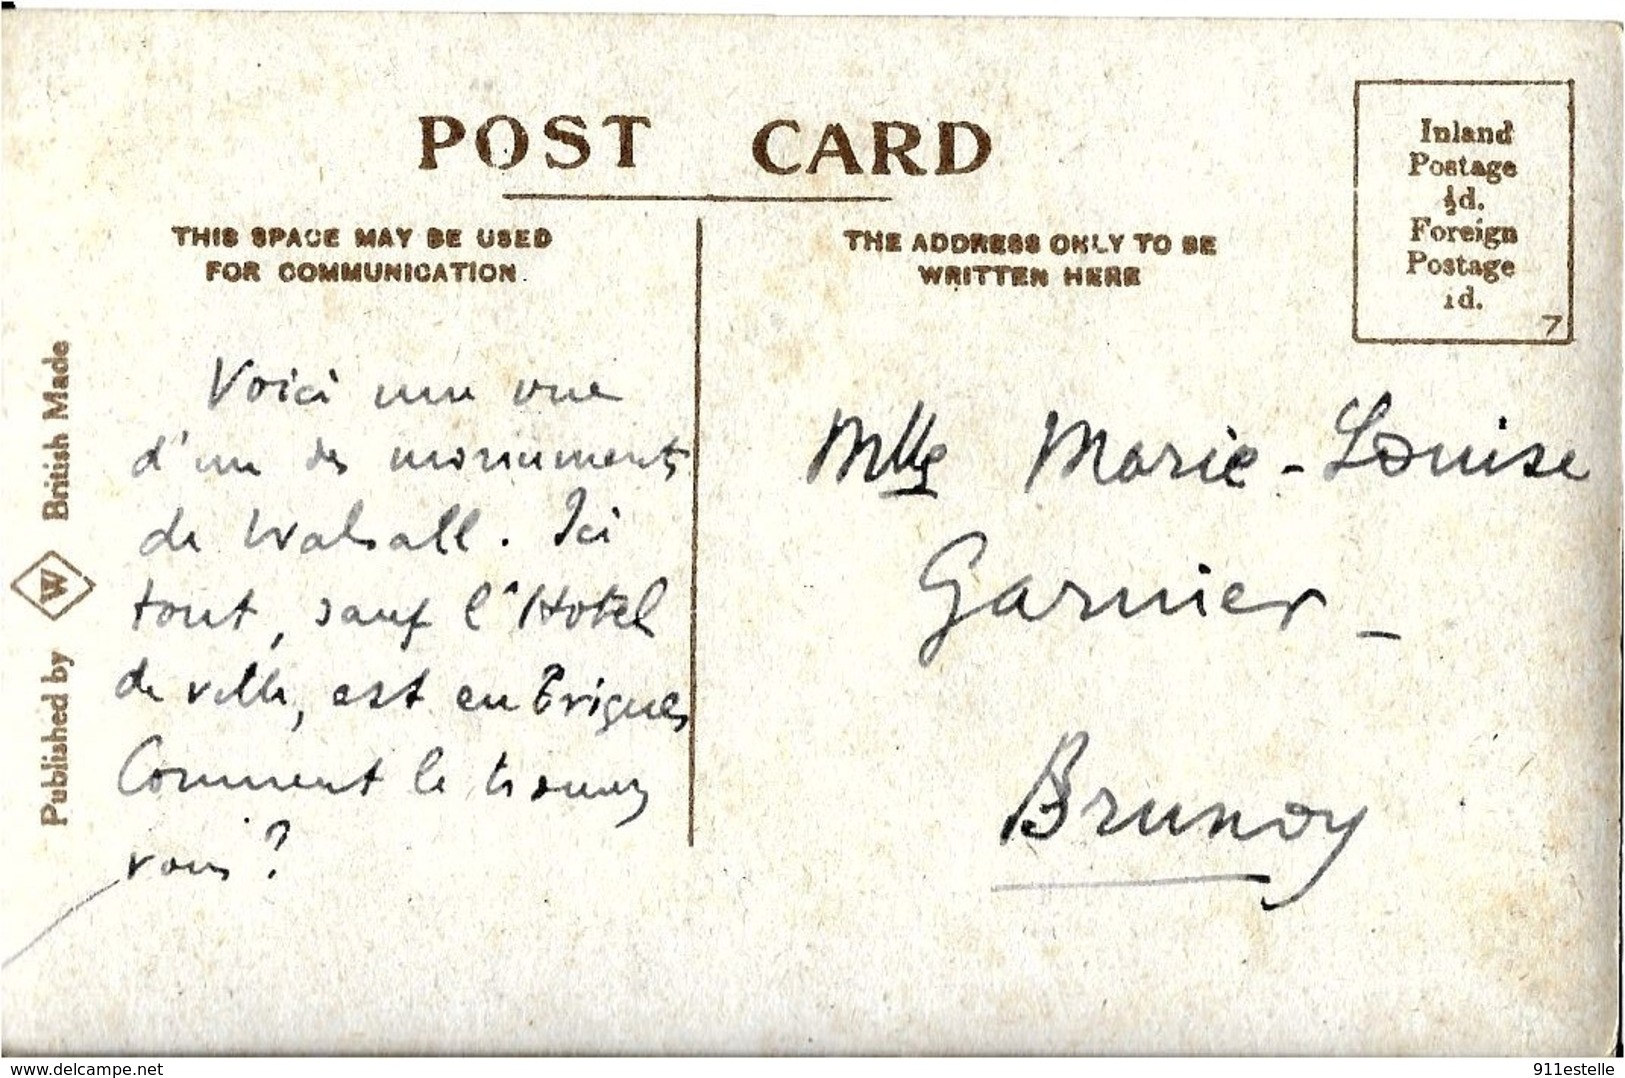 POST CARD
THIS SPACE MAY BE USED
FOR COMMUNICATION.
THE ADDRESS ONLY TO BE
WRITTEN HERE
Inland
Postage
½d.
Foreign
Postage
1d.
7
Published by W British Made
Voici une vue
d'un des monuments
de Walsall. Ici
tout, sauf l'Hotel
de ville, est en Briques
Comment le trouvez
vous ?
Mlle Marie-Louise
Garnier -
Brunoy
www.delcampe.net
911estelle